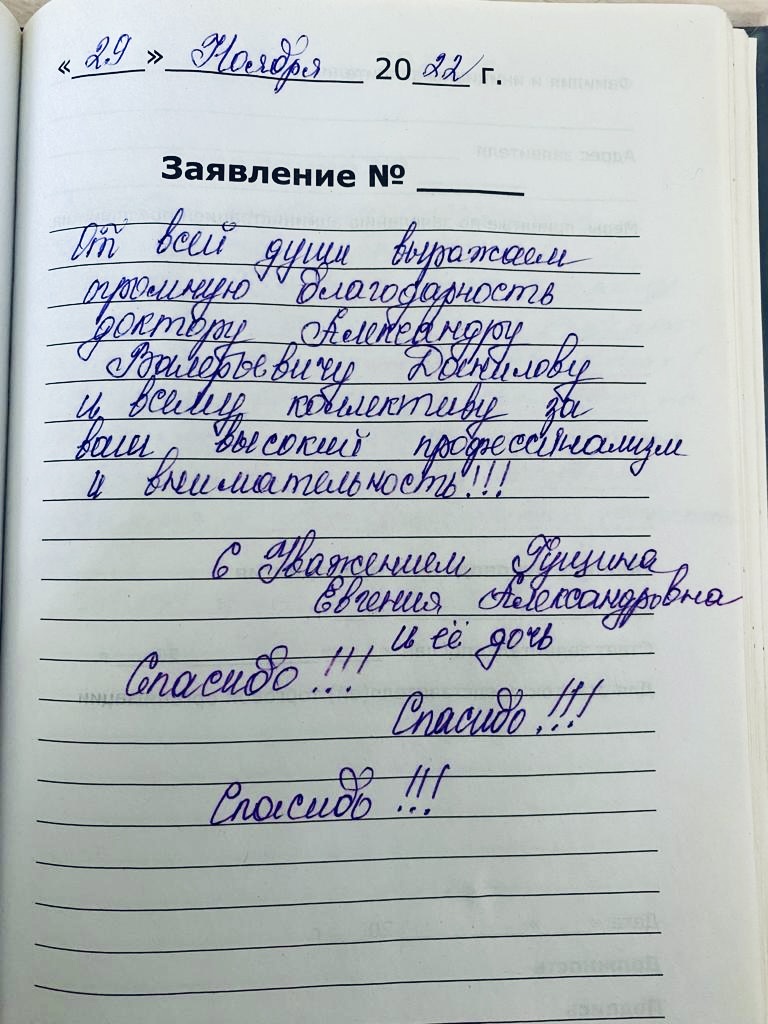 « 29 » Ноября 2022 г.
Заявление № ______
От всей души выражаем
огромную благодарность
доктору Александру
Валерьевичу Данилову
и всему коллективу за
ваш высокий професси​нализм
и внимательность!!!
С Уважением
Евгения Александровна
и её дочь
Спасибо!!!
Спасибо!!!
Спасибо!!!